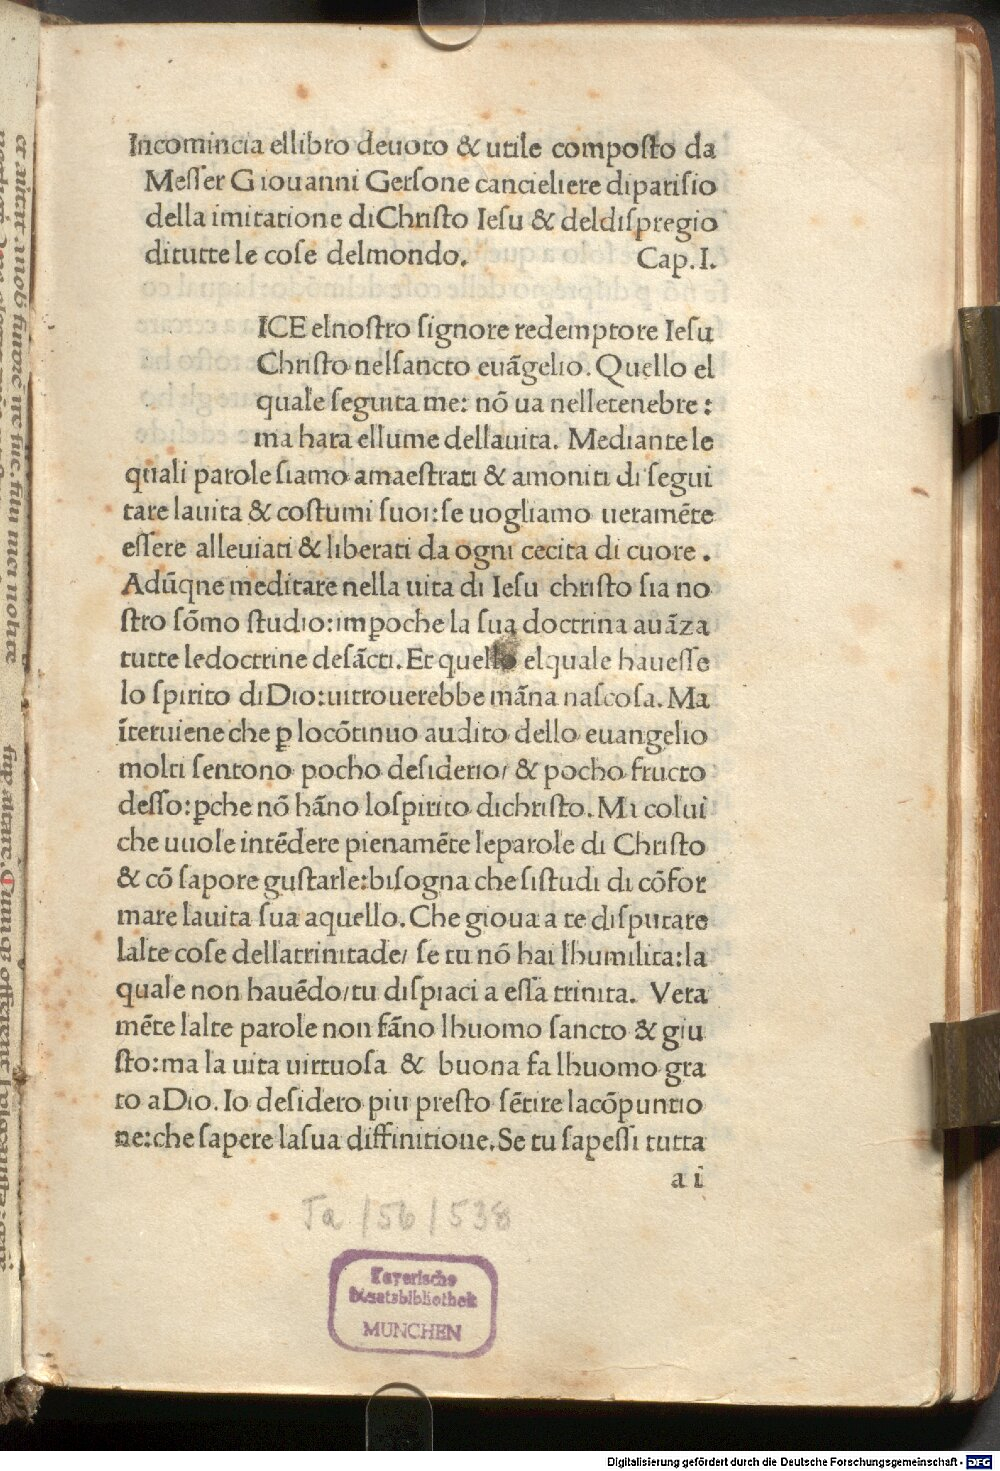 Incomincia ellibro deuoto & utile composto da
Messer Giouanni Gersone cancieliere diparisio
della imitatione diChristo Iesu & deldispregio
ditutte le cose delmondo. Cap. I.
ICE elnostro signore redemptore Iesu
Christo nelsancto euāgelio. Quello el
quale seguita me: nō ua nelletenebre:
ma hara ellume dellauita. Mediante le
quali parole siamo amaestrati & amoniti di segui
tare lauita & costumi suoi: se uogliamo ueramēte
essere alleuiati & liberati da ogni cecita di cuore.
Adūqne meditare nella uita di Iesu christo sia no
stro sōmo studio: imꝑoche la sua doctrina auāza
tutte ledoctrine desācti. Et quello elquale hauesse
lo spirito di Dio: uitrouerebbe māna nascosa. Ma
īteruiene che ꝑ locōtinuo audito dello euangelio
molti sentono pocho desiderio/ & pocho fructo
desso: ꝑche nō hāno lospirito dichristo. Ma colui
che uuole intēdere pienamēte leparole di Christo
& cō sapore gustarle: bisogna che sistudi di cōfor
mare lauita sua aquello. Che gioua a te disputare
lalte cose dellatrinitade/ se tu nō hai lhumilita: la
quale non hauēdo/tu dispiaci a essa trinita. Vera
mēte lalte parole non fāno lhuomo sancto & giu
sto: ma la uita uirtuosa & buona fa lhuomo gra
to aDio. Io desidero piu presto sētire lacōpuntio
ne: che sapere lasua diffinitione. Se tu sapessi tutta
a i
Ja /56/538
Bayerische
Staatsbibliothek
MÜNCHEN
Digitalisierung gefördert durch die Deutsche Forschungsgemeinschaft - DFG